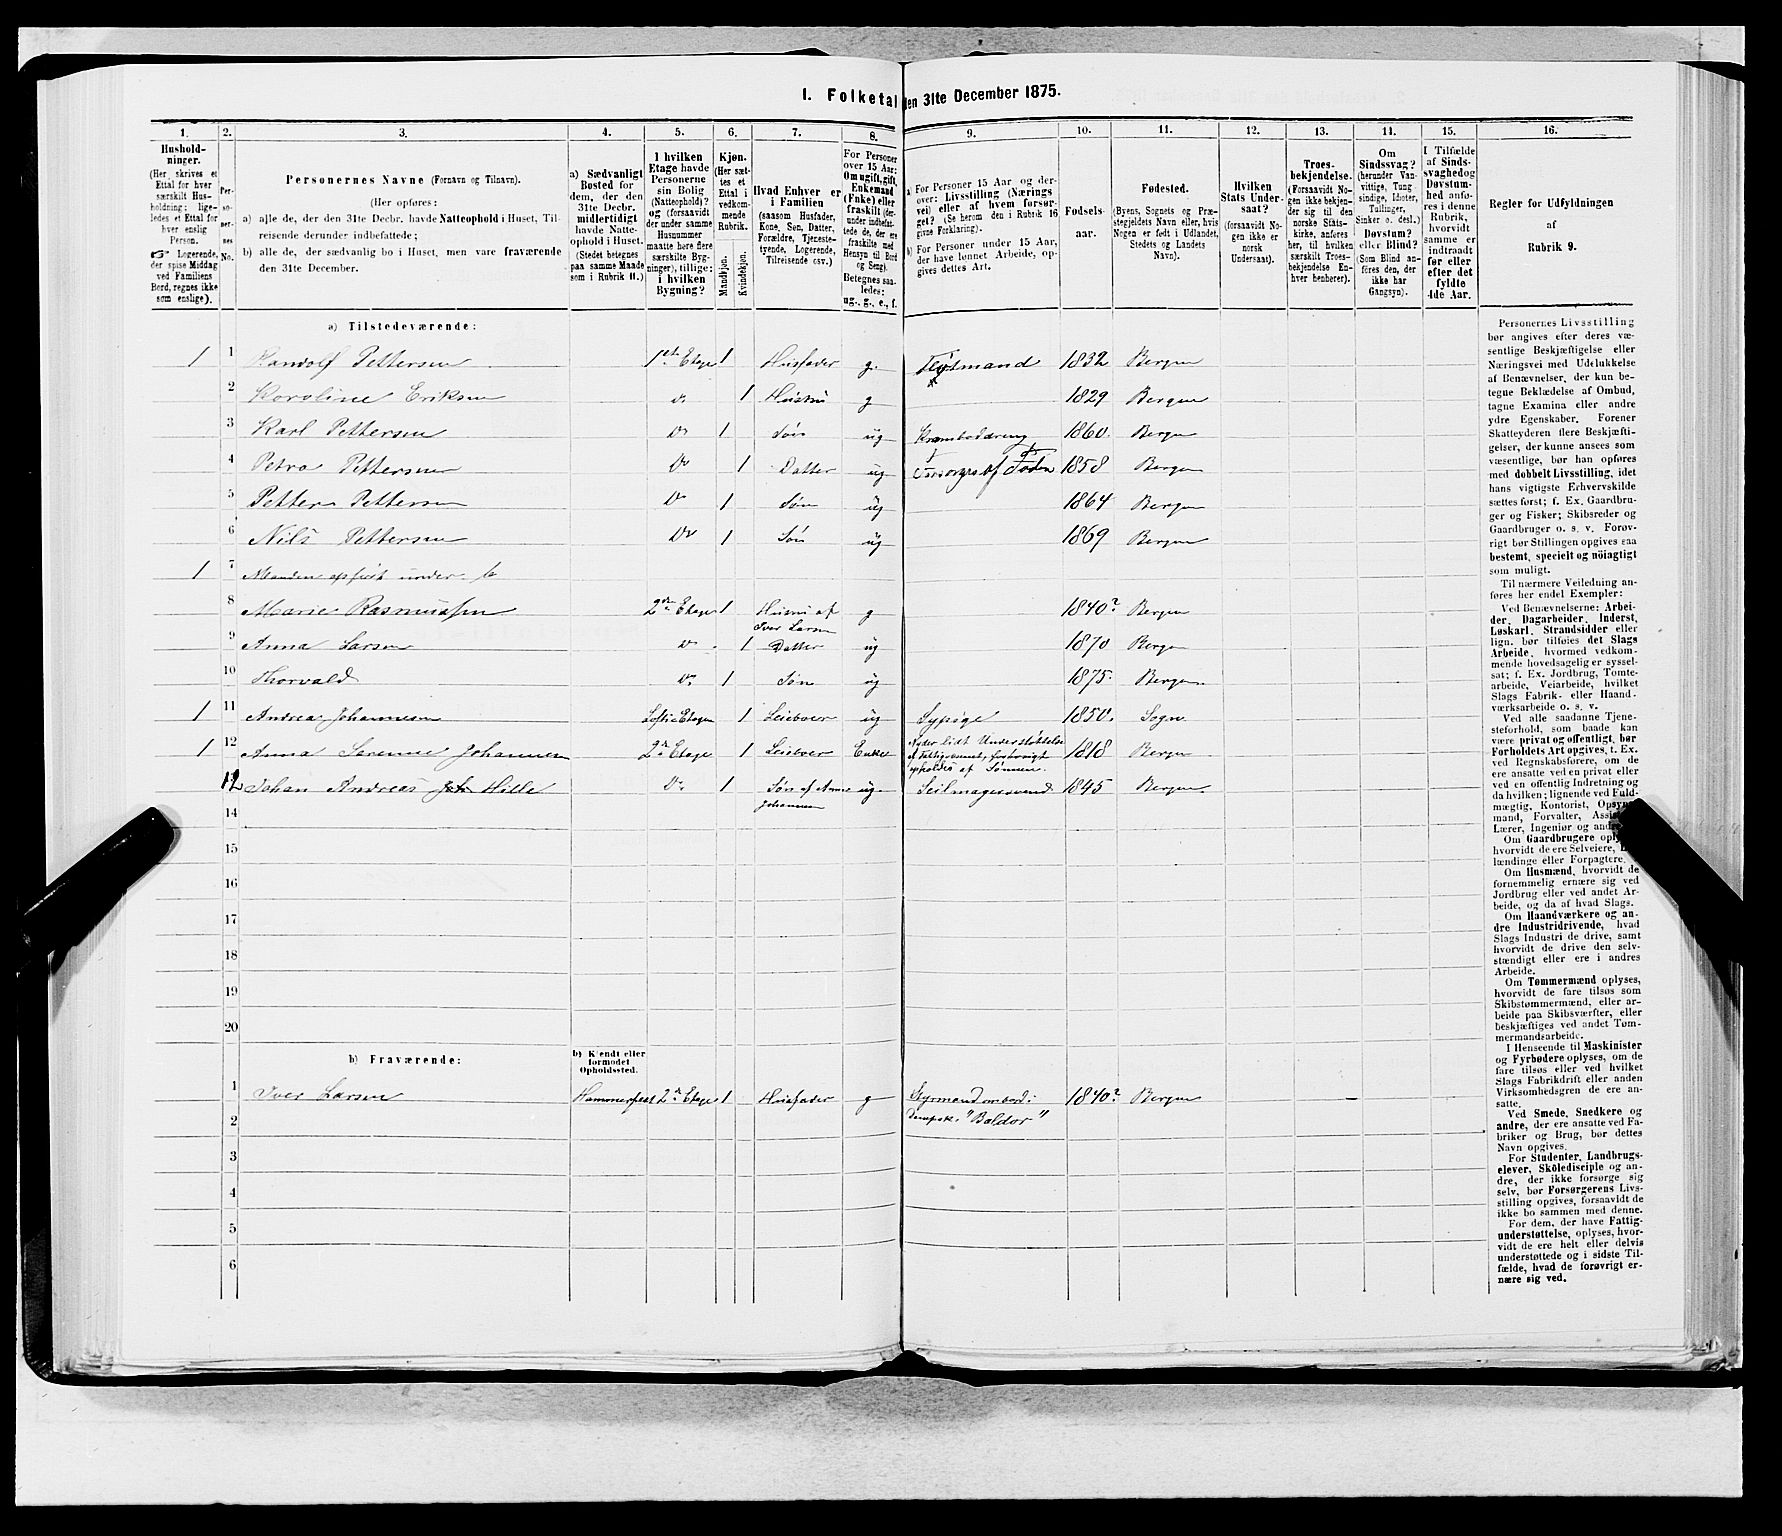 1. Folketal den 31te December 1875.
1.
Hushold-
ninger.
(Her skrives et
Ettal for hver
særskilt Hus-
holdning; lige-
ledes et Ettal for
hver enslig
Person.
☞ Logerende,
der spise Middag
ved Familiens
Bord, regnes ikke
som enslige).
2.
Per-
so-
ner-
nes
No.
3.
Personernes Navne (Fornavn og Tilnavn).
(Her opføres:
a) alle de, der den 31te Decbr. havde Natteophold i Huset, Til-
reisende derunder indbefattede;
b) alle de, der sædvanlig bo i Huset, men vare fraværende
den 31te December.
4.
a) Sædvanligt
Bosted for
dem, der den
31te Decbr.
midlertidigt
havde Natte-
ophold i Huset.
(Stedet betegnes
paa samme Maade
som i Rubrik 11.)
5.
I hvilken
Etage havde
Personerne
sin Bolig
(Natteophold)?
og (forsaavidt
der under samme
Husnummer
maatte høre flere
særskilte Byg-
ninger), tillige:
i hvilken
Bygning?
6.
Kjøn.
(Her sæt-
tes et
Ettal i
vedkom-
mende
Rubrik.
Mandkjøn.
Kvindekjøn.
7.
Hvad Enhver er
i Familien
(saasom Husfader,
Kone, Søn, Datter,
Forældre, Tjeneste-
tyende, Logerende,
Tilreisende osv.)
8.
For Personer
over 15 Aar:
Om ugift, gift,
Enkemand
(Enke) eller
fraskilt (der-
under indbefat-
tede de, der ere
fraskilte med
Hensyn til Bord
og Seng).
Betegnes saa-
ledes:
ug., g., e., f.
9.
a) For Personer 15 Aar og der-
over: Livsstilling (Nærings
vei) eller af hvem forsør-
get? (Se herom den i Rubrik 16
givne Forklaring).
b) For Personer under 15 Aar,
der have lønnet Arbeide, op-
gives dettes Art.
10.
Fødsels-
aar.
11.
Fødested.
(Byens, Sognets og Præ-
stegjeldets Navn eller, hvis
Nogen er født i Udlandet,
Stedets og Landets
Navn).
12.
Hvilken
Stats Under-
saat?
(forsaavidt No-
gen ikke er
norsk
Undersaat).
13.
Troes-
bekjendelse.
(Forsaavidt No-
gen ikke bekjen-
der sig til den
norske Stats-
kirke, anføres
her, til hvilken
særskilt Troes-
bekjendelse En-
hver henhører).
14.
Om
Sindssvag?
(herunder Van-
vittige, Tung
sindige, Idioter,
Tullinger,
Sinker o. desl.)
Døvstum?
eller Blind?
(Som Blind an-
føres den, der
ikke har
Gangsyn).
15.
I Tilfælde
af Sinds-
svaghed og
Døvstum-
hed anfø-
res i denne
Rubrik,
hvorvidt
samme er
indtraadt
før eller
efter det
fyldte
4de Aar.
16.
Regler for Udfyldningen
af
Rubrik 9.
a) Tilstedeværende:
1 1 Randolf Pettersen 1ste Etage 1 Husfader g. 1832 Bergen
2 Karoline Eriksen do 1 Hustru g 1829 Bergen
3 Karl Pettersen Do 1 Søn ug Kramboddreng 1860. Bergen
4 Petra Pettersen Do 1 Datter ug Forsørges af Faderen 1858 Bergen
5 Petter Pettersen Do 1 Søn ug 1864 Bergen
6 Nils Pettersen Do 1 Søn ug 1869 Bergen
1 7 Manden opført under b
8 Marie Rasmussen 2den Etage 1 Hustru af Iver Larsen g 1840? Bergen
9 Anna Larsen do 1 Datter ug 1870 Bergen
10 Thorvald do 1 Søn ug 1875. Bergen
1 11 Andrea Johannesen Lofts Etagen 1 Leieboer ug Sypige 1850. Sogn
1 12 Anna Serenne Johannesen 2den Etage 1 Leieboer Enke Nyder lidt Understøttelse
af Fattigvæsenet, forøvrigt
opholdes af Sønnen. 1818 Bergen
12 Johan Andreas Joh Hille Do 1 Søn af Anna Johannesen ug Seilmagersvend 1845 Bergen
14
15
16
17
18
19
20
b) Fraværende:
b) Kjendt eller
formodet
Opholdssted.
1 Iver Larsen Hammerfest 2den Etage 1 Husfader g Styrmand ombord i
Dampsk. "Baldor" 1840? Bergen
2
3
4
5
6
Personernes Livsstilling
bør angives efter deres væ-
sentlige Beskjæftigelse eller
Næringsvei med Udelukkelse
af Benævnelser, der kun be-
tegne Beklædelse af Ombud,
tagne Examina eller andre
ydre Egenskaber. Forener
Skatteyderen flere Beskjæfti-
gelser, der kunne ansees som
væsentlige, bør han opføres
med dobbelt Livsstilling, idet
hans vigtigste Erhvervskilde
sættes først; f. Ex. Gaardbru-
ger og Fisker; Skibsreder og
Gaardbruger o. s. v. Forøv-
rigt bør Stillingen opgives saa
bestemt, specielt og nöiagtigt
som muligt.
Til nærmere Veiledning an-
føres her endel Exempler:
Ved Benævnelserne: Arbei-
der, Dagarbeider, Inderst,
Løskarl, Strandsidder eller
lign. bør tilføies det Slags
Arbeide, hvormed vedkom-
mende hovedsagelig er syssel-
sat; f. Ex. Jordbrug, Tomte-
arbeide, Veiarbeide, hvilket
Slags Fabrik- eller Haand-
værksarbeide o. s. v.
Ved alle saadanne Tjene-
steforhold, som baade kan
være privat og offentligt, bør
Forholdets Art opgives, t. Ex.
ved Regnskabsførere, om de
ere ansatte ved en privat eller
ved en offentlig Indretning og
da hvilken; lignende ved Fuld-
mægtig, Kontorist, Opsyns-
mand, Forvalter, Assi
Lærer, Ingeniør og andre
Om Gaardbrugere oply
hvorvidt de ere Selveiere,
lændinge eller Forpagtere.
Om Husmænd, hvorvidt de
fornemmelig ernære sig ved
Jordbrug eller ved andet Ar-
beide, og da af hvad Slags.
Om Haandværkere og an-
dre Industridrivende, hvad
Slags Industri de drive, samt
hvorvidt de drive den selv-
stændigt eller ere i andres
Arbeide.
Om Tømmermænd oplyses,
hvorvidt de fare tilsøs som
Skibstømmermænd, eller ar-
beide paa Skibsværfter, eller
beskjæftiges ved andet Tøm-
mermandsarbeide.
I Henseende til Maskinister
og Fyrbødere oplyses, om de
fare tilsøs eller ved hvilket
Slags Fabrikdrift eller anden
Virksomhedsgren de ere an-
satte.
Ved Smede, Snedkere og
andre, der ere ansatte ved Fa-
briker og Brug, bør dettes
Navn opgives.
For Studenter, Landbrugs-
elever, Skoledisciple og an-
dre, der ikke forsørge sig
selv, bør Forsørgerens Livs-
stilling opgives, forsaavidt de
ikke bo sammen med denne.
For dem, der have Fattig-
understøttelse, oplyses, hvor-
vidt de ere helt eller delvis
understøttede og i sidste Til-
fælde, hvad de forøvrigt er-
nære sig ved.